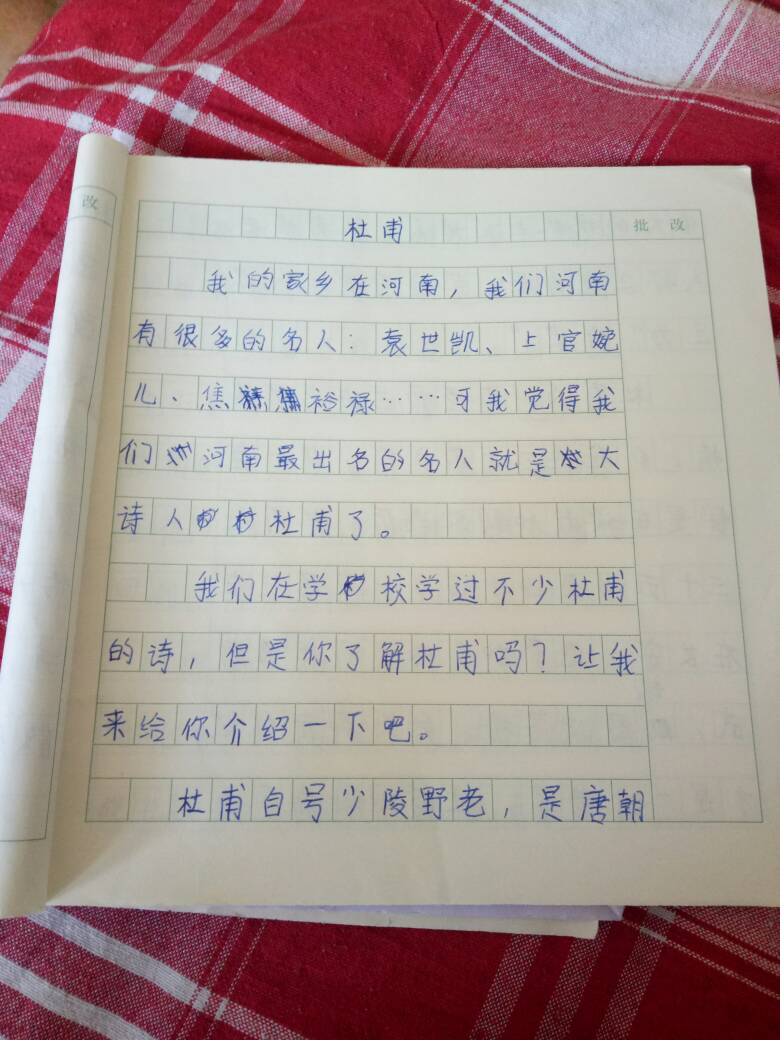 改
批 改
杜甫
我的家乡在河南，我们河南
有很多的名人：袁世凯、上官婉
儿、焦裕禄……可我觉得我
们河南最出名的名人就是大
诗人杜甫了。
我们在学校学过不少杜甫
的诗，但是你了解杜甫吗？让我
来给你介绍一下吧。
杜甫自号少陵野老，是唐朝